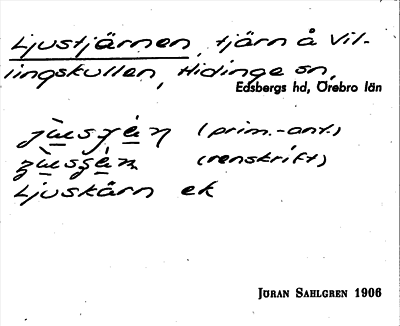 Ljustjärnen, tjärn å Vil-
lingskullen, Hidinge sn,
Edsbergs hd, Örebro län
(prim.-ant.)
(renskrift)
Ljuskärn ek
JÖRAN SAHLGREN 1906